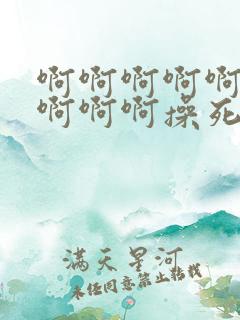 啊啊啊啊啊
啊啊啊操死
满天星河
未经同意禁止转载